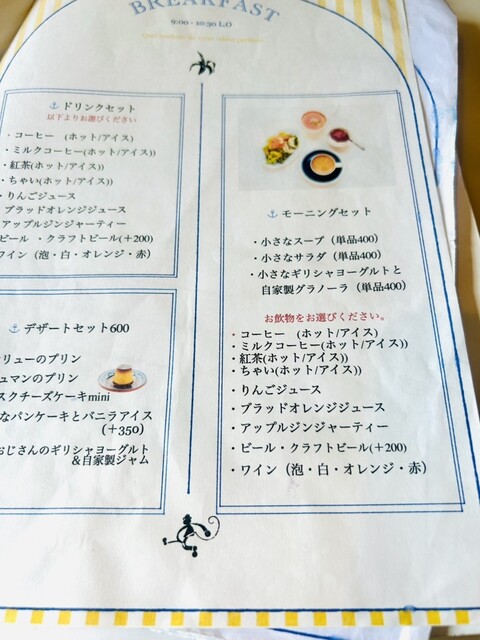 BREAKFAST
9:00 - 10:30 L.O
ドリンクセット
以下よりお選びください
・コーヒー (ホット/アイス)
・ミルクコーヒー(ホット/アイス))
・紅茶(ホット/アイス))
・ちゃい(ホット/アイス))
・りんごジュース
ブラッドオレンジジュース
アップルジンジャーティー
ビール ・クラフトビール(+200)
ワイン（泡・白・オレンジ・赤）
デザートセット600
リューのプリン
ュマンのプリン
スクチーズケーキmini
なパンケーキとバニラアイス
(+350)
おじさんのギリシャヨーグルト
&自家製ジャム
モーニングセット
・小さなスープ（単品400）
・小さなサラダ（単品400）
・小さなギリシャヨーグルトと
自家製グラノーラ（単品400）
お飲物をお選びください。
・コーヒー (ホット/アイス)
・ミルクコーヒー(ホット/アイス))
・紅茶(ホット/アイス))
・ちゃい(ホット/アイス))
・りんごジュース
・ブラッドオレンジジュース
・アップルジンジャーティー
・ビール・クラフトビール(+200)
・ワイン（泡・白・オレンジ・赤）